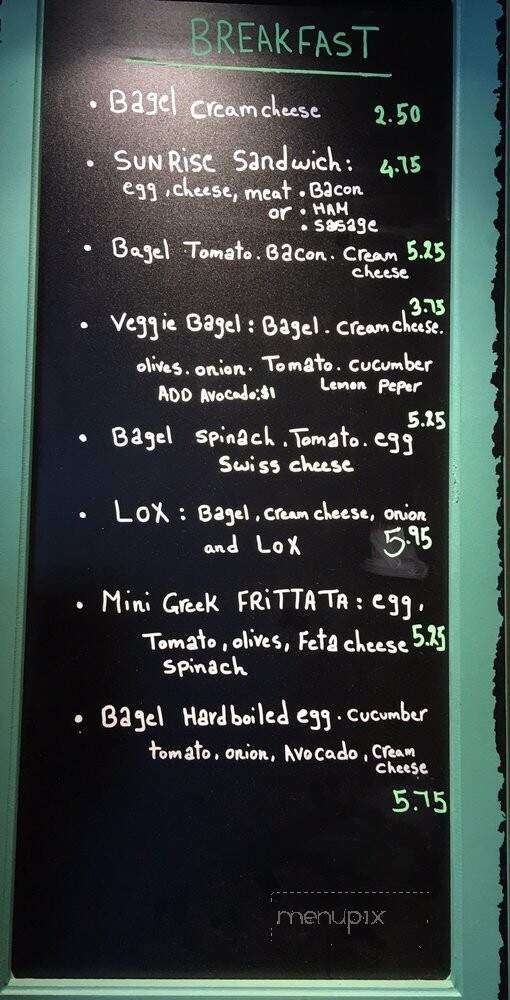 BREAKFAST
• Bagel creamcheese 2.50
• SUNRISE Sandwich: 4.75
egg, cheese, meat • Bacon
or • HAM
• sasage
• Bagel Tomato. Bacon. Cream 5.25
cheese
3.75
• Veggie Bagel: Bagel. creamcheese.
olives. onion. Tomato. cucumber
ADD Avocado:$1 Lemon Peper
5.25
• Bagel spinach. Tomato. egg
Swiss cheese
• LOX: Bagel, cream cheese, onion
and LOX 5.95
• Mini Greek FRiTTATA: egg,
Tomato, olives, Feta cheese 5.25
spinach
• Bagel Hardboiled egg. cucumber
tomato, onion, Avocado, Cream
cheese
5.75
menupix